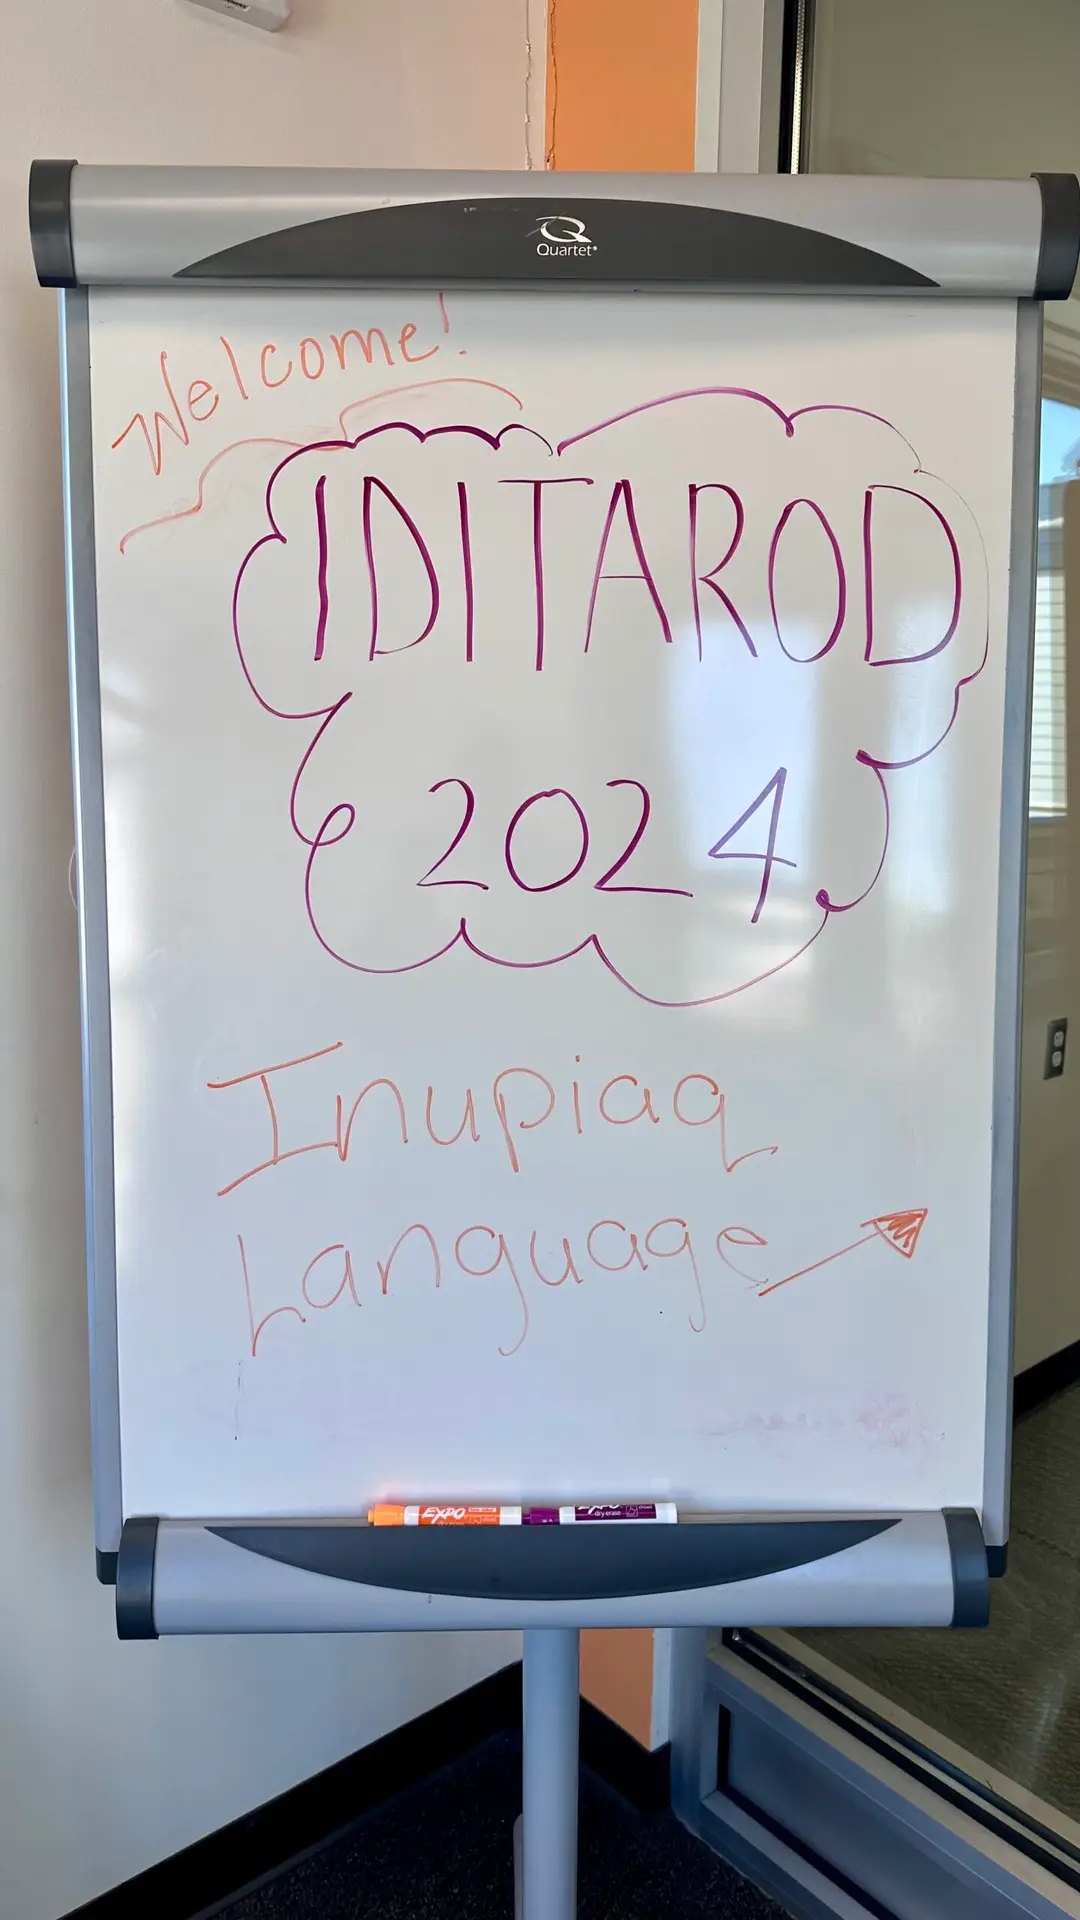 Quartet
Welcome!
IDITAROD
2024
Inupiaq
Language
EXPO
EXPO
dry erase